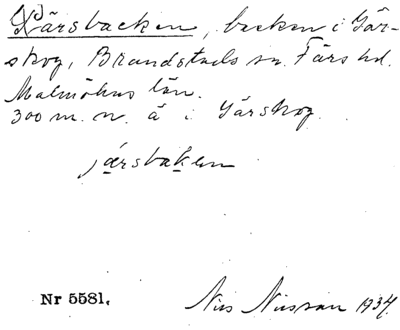 Gärsbacken, backen i Gär-
skog, Brandstads sn. Färs hd.
Malmöhus län.
300 m. n. å i Gärskog.
järsbaken
Nr 5581.
Nils Nilsson 1934.